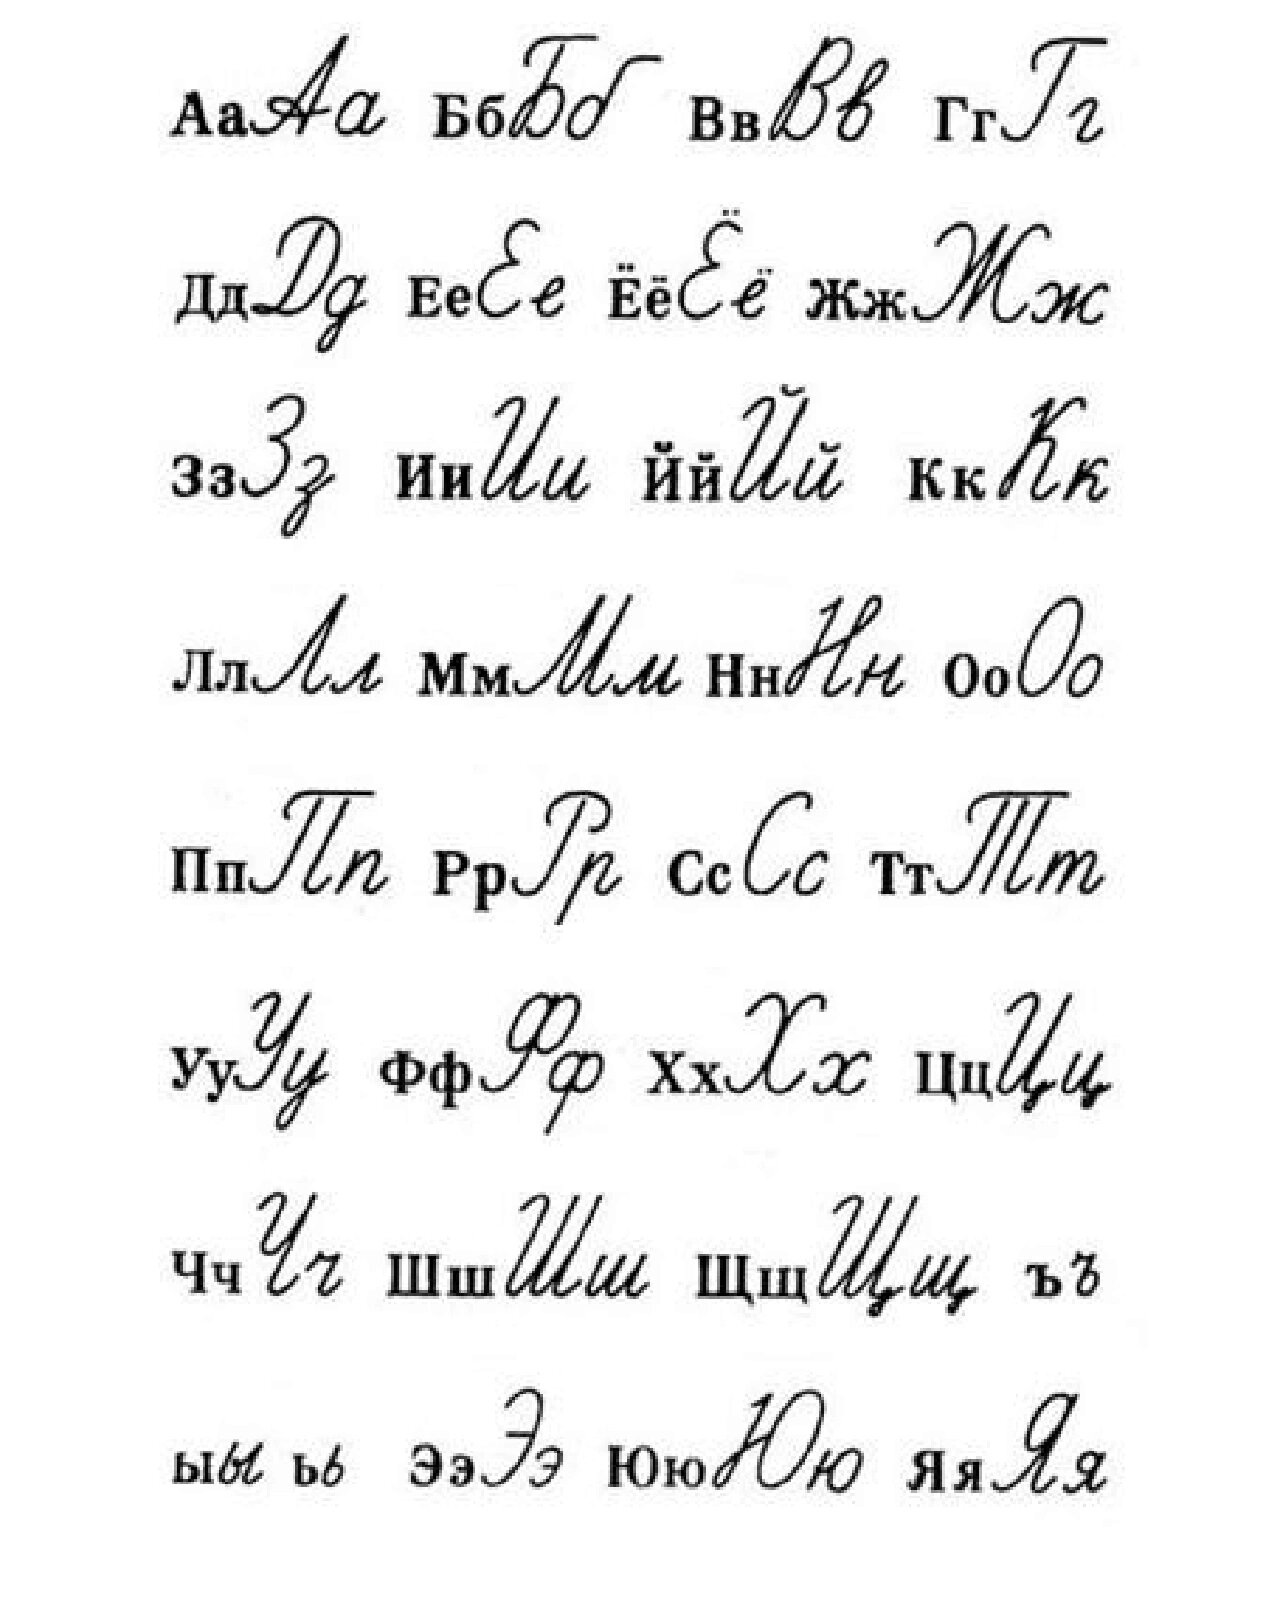 Аа Аа Бб Бб Вв Вв Гг Гг
Дд Дд Ее Ее Ёё Ёё Жж Жж
Зз Зз Ии Ии Йй Йй Кк Кк
Лл Лл Мм Мм Нн Нн Оо Оо
Пп Пп Рр Рр Сс Сс Тт Тт
Уу Уу Фф Фф Хх Хх Цц Цц
Чч Чч Шш Шш Щщ Щщ ъ ъ
ы ы ь ь Ээ Ээ Юю Юю Яя Яя